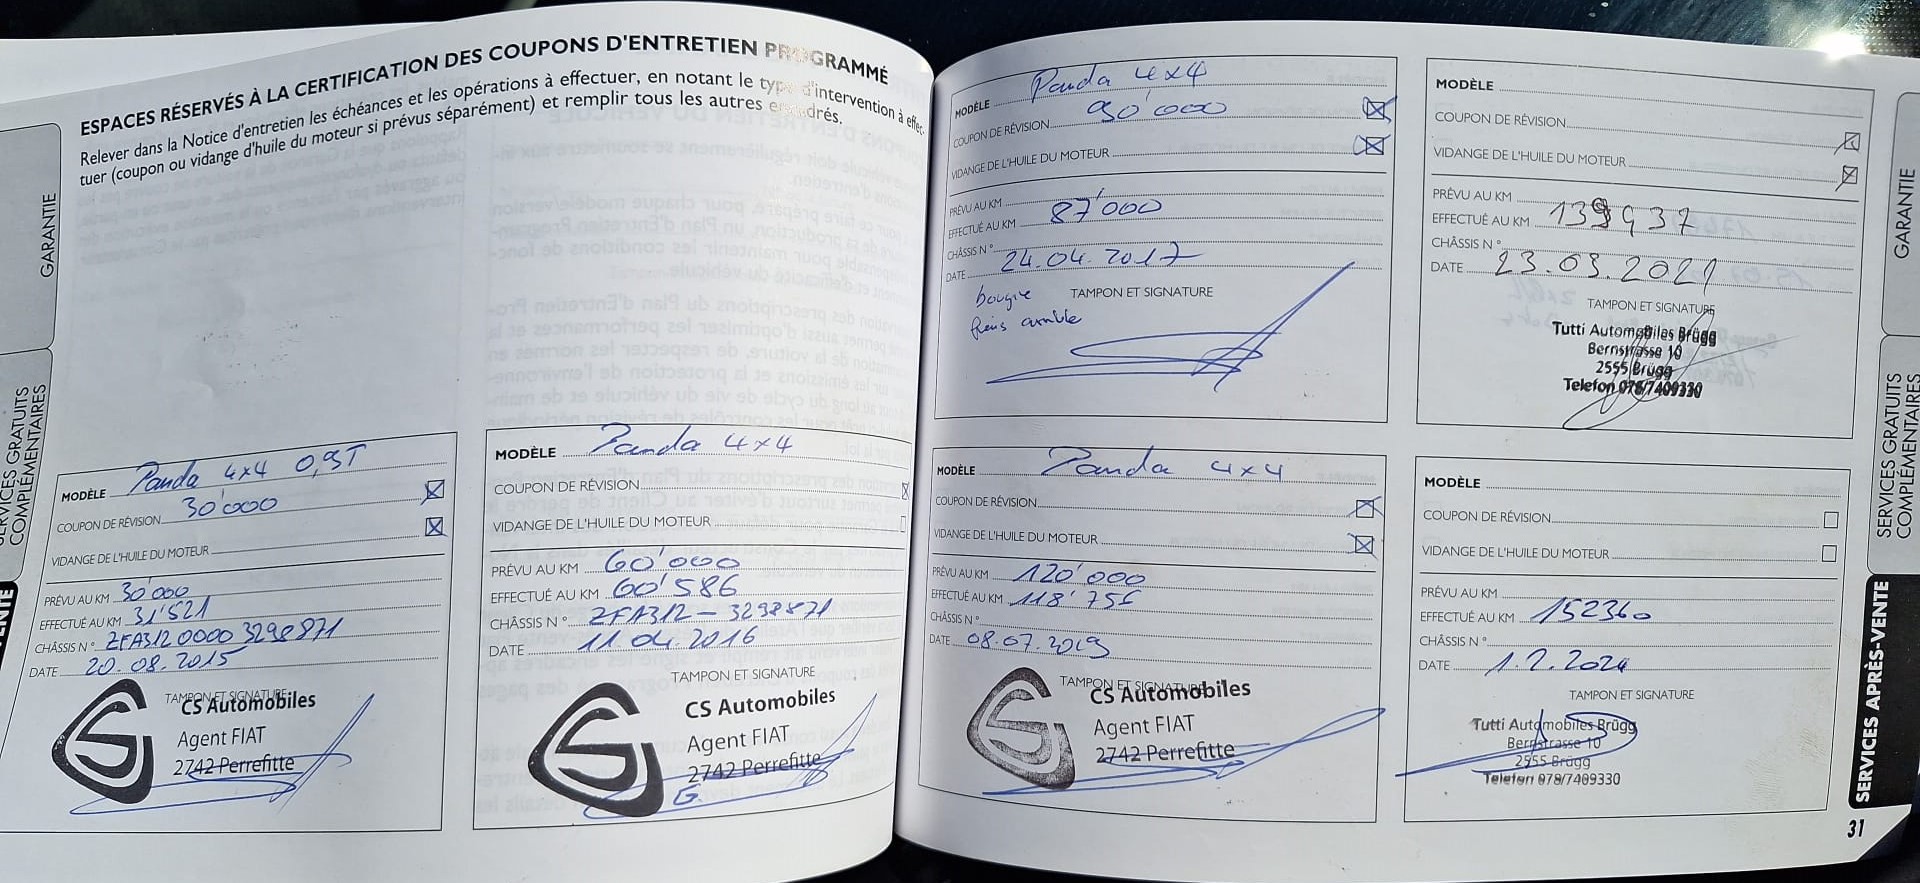 ESPACES RÉSERVÉS À LA CERTIFICATION DES COUPONS D'ENTRETIEN PROGRAMMÉ
Relever dans la Notice d'entretien les échéances et les opérations à effectuer, en notant le type d'intervention à effec-
tuer (coupon ou vidange d'huile du moteur si prévus séparément) et remplir tous les autres encadrés.
GARANTIE
SERVICES GRATUITS
COMPLÉMENTAIRES
MODÈLE Panda 4x4 0,9T
COUPON DE RÉVISION 30'000
VIDANGE DE L'HUILE DU MOTEUR
PRÉVU AU KM 30'000
EFFECTUÉ AU KM 31'521
CHÂSSIS N° ZFA31200003298871
DATE 20.08.2015
TAMPON ET SIGNATURE
CS Automobiles
Agent FIAT
2742 Perrefitte
MODÈLE Panda 4x4
COUPON DE RÉVISION
VIDANGE DE L'HUILE DU MOTEUR
PRÉVU AU KM 60'000
EFFECTUÉ AU KM 60'586
CHÂSSIS N° ZFA312-3298871
DATE 11.04.2016
TAMPON ET SIGNATURE
CS Automobiles
Agent FIAT
2742 Perrefitte
MODÈLE Panda 4x4
COUPON DE RÉVISION 90'000
VIDANGE DE L'HUILE DU MOTEUR
PRÉVU AU KM
EFFECTUÉ AU KM 87'000
CHÂSSIS N°
DATE 24.04.2017
TAMPON ET SIGNATURE
bougie
freins
MODÈLE Panda 4x4
COUPON DE RÉVISION
VIDANGE DE L'HUILE DU MOTEUR
PRÉVU AU KM 120'000
EFFECTUÉ AU KM 118'756
CHÂSSIS N°
DATE 08.07.2019
TAMPON ET SIGNATURE
CS Automobiles
Agent FIAT
2742 Perrefitte
MODÈLE
COUPON DE RÉVISION
VIDANGE DE L'HUILE DU MOTEUR
PRÉVU AU KM
EFFECTUÉ AU KM 139937
CHÂSSIS N°
DATE 23.03.2021
TAMPON ET SIGNATURE
Tutti Automobiles Brügg
Bernstrasse 10
2555 Brügg
Telefon 078/7409330
MODÈLE
COUPON DE RÉVISION
VIDANGE DE L'HUILE DU MOTEUR
PRÉVU AU KM
EFFECTUÉ AU KM 152360
CHÂSSIS N°
DATE 1.2.2024
TAMPON ET SIGNATURE
Tutti Automobiles Brügg
Bernstrasse 10
2555 Brügg
Telefon 078/7409330
GARANTIE
SERVICES GRATUITS
COMPLÉMENTAIRES
SERVICES APRÈS-VENTE
31